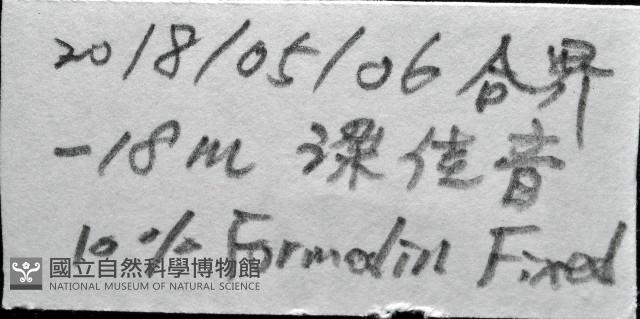 2018/05/06 合界
-18m 梁佳音
10% Formalin Fixed
國立自然科學博物館
NATIONAL MUSEUM OF NATURAL SCIENCE